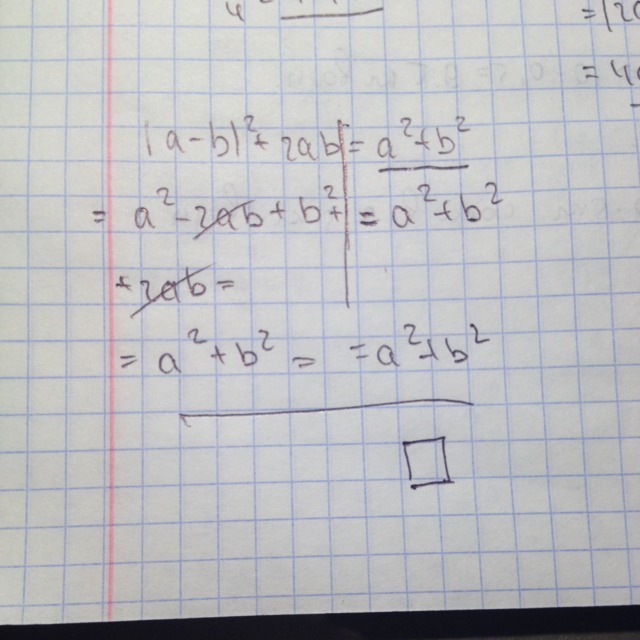 4
= (20
= 40
(a-b)² + 2ab = a² + b²
= a² - 2ab + b² + = a² + b²
+ 2ab =
= a² + b² = = a² + b²